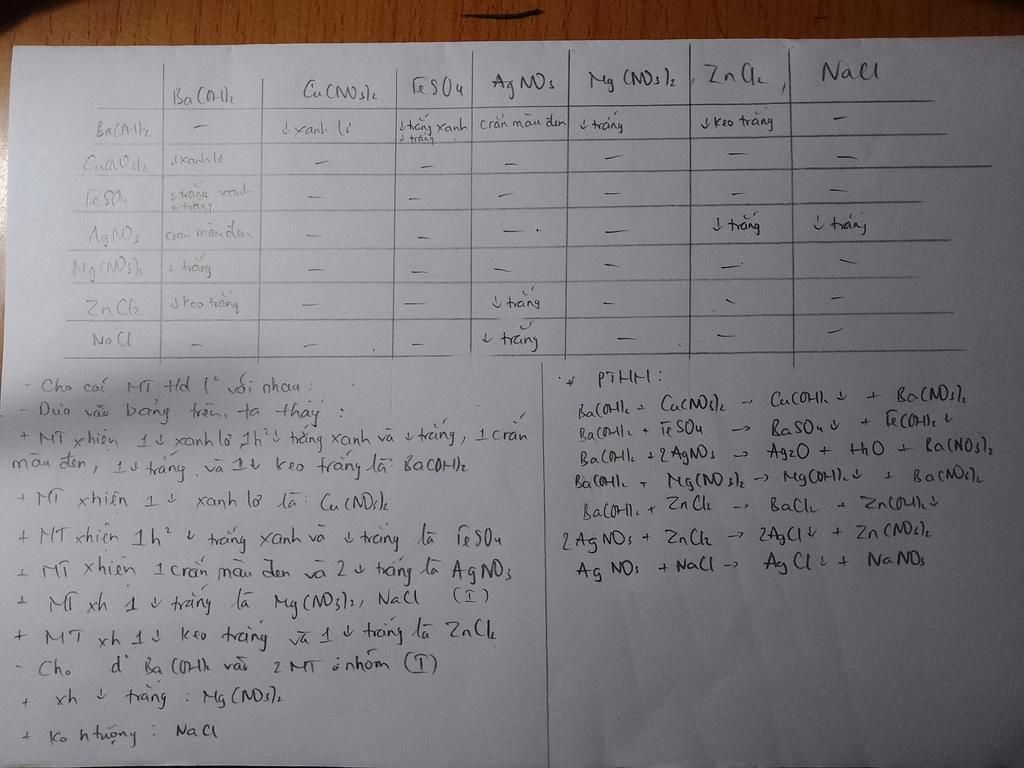 Ba(OH)₂ Cu(NO₃)₂ FeSO₄ AgNO₃ Mg(NO₃)₂ ZnCl₂ NaCl
Ba(OH)₂ — ↓ xanh lơ ↓ trắng xanh ↓ trắng crắn màu đen ↓ trắng ↓ keo trắng —
Cu(NO₃)₂ ↓ xanh lơ — — — — — —
FeSO₄ ↓ trắng xanh ↓ trắng — — — — — —
AgNO₃ crắn màu đen — — — — ↓ trắng ↓ trắng
Mg(NO₃)₂ ↓ trắng — — — — — —
ZnCl₂ ↓ keo trắng — — ↓ trắng — — —
NaCl — — — ↓ trắng — — —
- Cho các MT t/d l² với nhau:
- Dựa vào bảng trên, ta thấy:
+ MT xhiện 1 ↓ xanh lơ, 1h² ↓ trắng xanh và ↓ trắng, 1 crắn
màu đen, 1 ↓ trắng và 1 ↓ keo trắng là: Ba(OH)₂
+ MT xhiện 1 ↓ xanh lơ là: Cu(NO₃)₂
+ MT xhiện 1h² ↓ trắng xanh và ↓ trắng là FeSO₄
+ MT xhiện 1 crắn màu đen và 2 ↓ trắng là AgNO₃
+ MT xh 1 ↓ trắng là Mg(NO₃)₂, NaCl (I)
+ MT xh 1 ↓ keo trắng và 1 ↓ trắng là ZnCl₂
- Cho d² Ba(OH)₂ vào 2 MT ở nhóm (I)
+ xh ↓ trắng: Mg(NO₃)₂
+ ko htượng: NaCl
* PTHH:
Ba(OH)₂ + Cu(NO₃)₂ → Cu(OH)₂↓ + Ba(NO₃)₂
Ba(OH)₂ + FeSO₄ → BaSO₄↓ + Fe(OH)₂↓
Ba(OH)₂ + 2AgNO₃ → Ag₂O + H₂O + Ba(NO₃)₂
Ba(OH)₂ + Mg(NO₃)₂ → Mg(OH)₂↓ + Ba(NO₃)₂
Ba(OH)₂ + ZnCl₂ → BaCl₂ + Zn(OH)₂↓
2AgNO₃ + ZnCl₂ → 2AgCl↓ + Zn(NO₃)₂
AgNO₃ + NaCl → AgCl↓ + NaNO₃